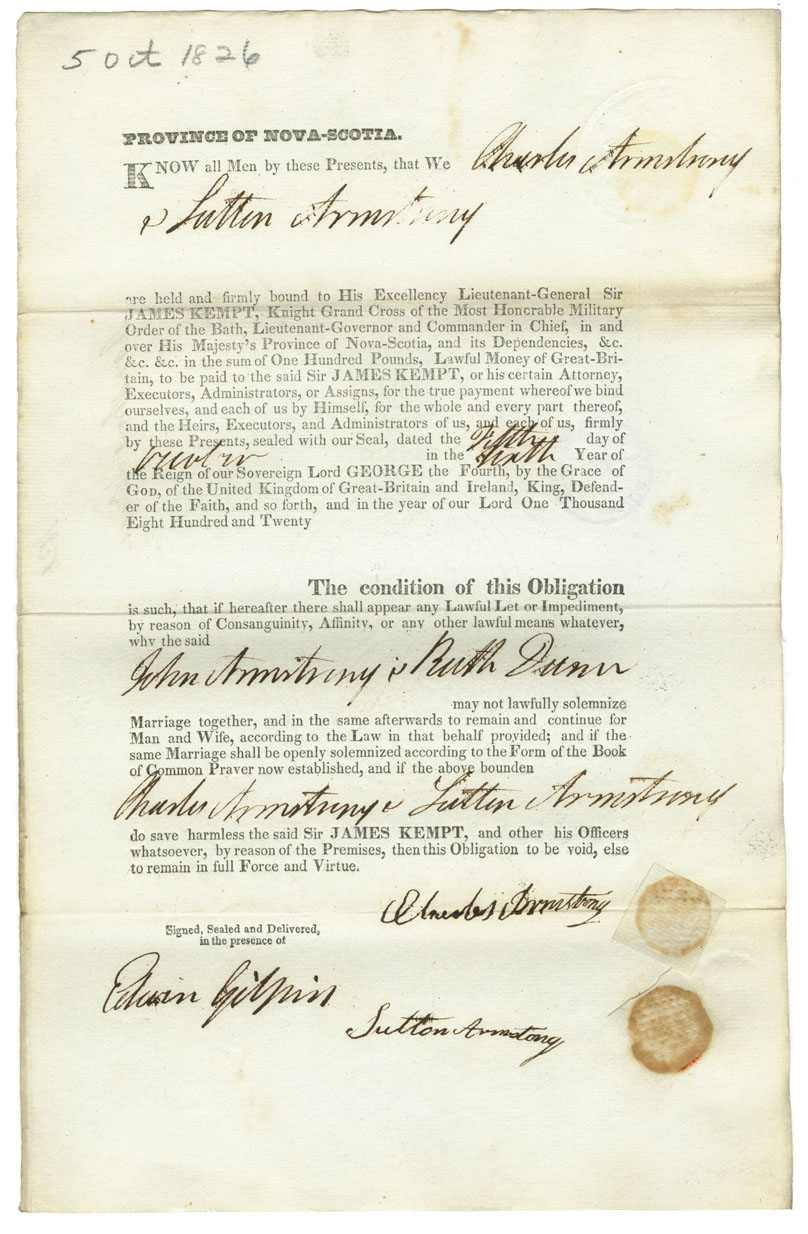 5 Oct 1826
PROVINCE OF NOVA-SCOTIA.
KNOW all Men by these Presents, that We Charles Armstrong
& Sutton Armstrong
are held and firmly bound to His Excellency Lieutenant-General Sir
JAMES KEMPT, Knight Grand Cross of the Most Honorable Military
Order of the Bath, Lieutenant-Governor and Commander in Chief, in and
over His Majesty's Province of Nova-Scotia, and its Dependencies, &c.
&c. &c. in the sum of One Hundred Pounds, Lawful Money of Great-Bri-
tain, to be paid to the said Sir JAMES KEMPT, or his certain Attorney,
Executors, Administrators, or Assigns, for the true payment whereof we bind
ourselves, and each of us by Himself, for the whole and every part thereof,
and the Heirs, Executors, and Administrators of us, and each of us, firmly
by these Presents, sealed with our Seal, dated the Fifth day of
October in the Year of
the Reign of our Sovereign Lord GEORGE the Fourth, by the Grace of
GOD, of the United Kingdom of Great-Britain and Ireland, King, Defend-
er of the Faith, and so forth, and in the year of our Lord One Thousand
Eight Hundred and Twenty
The condition of this Obligation
is such, that if hereafter there shall appear any Lawful Let or Impediment,
by reason of Consanguinity, Affinity, or any other lawful means whatever,
why the said
John Armstrong & Ruth Dunn
may not lawfully solemnize
Marriage together, and in the same afterwards to remain and continue for
Man and Wife, according to the Law in that behalf provided; and if the
same Marriage shall be openly solemnized according to the Form of the Book
of Common Prayer now established, and if the above bounden
Charles Armstrong & Sutton Armstrong
do save harmless the said Sir JAMES KEMPT, and other his Officers
whatsoever, by reason of the Premises, then this Obligation to be void, else
to remain in full Force and Virtue.
Charles Armstrong
Signed, Sealed and Delivered,
in the presence of
Edwin Gilpin
Sutton Armstong